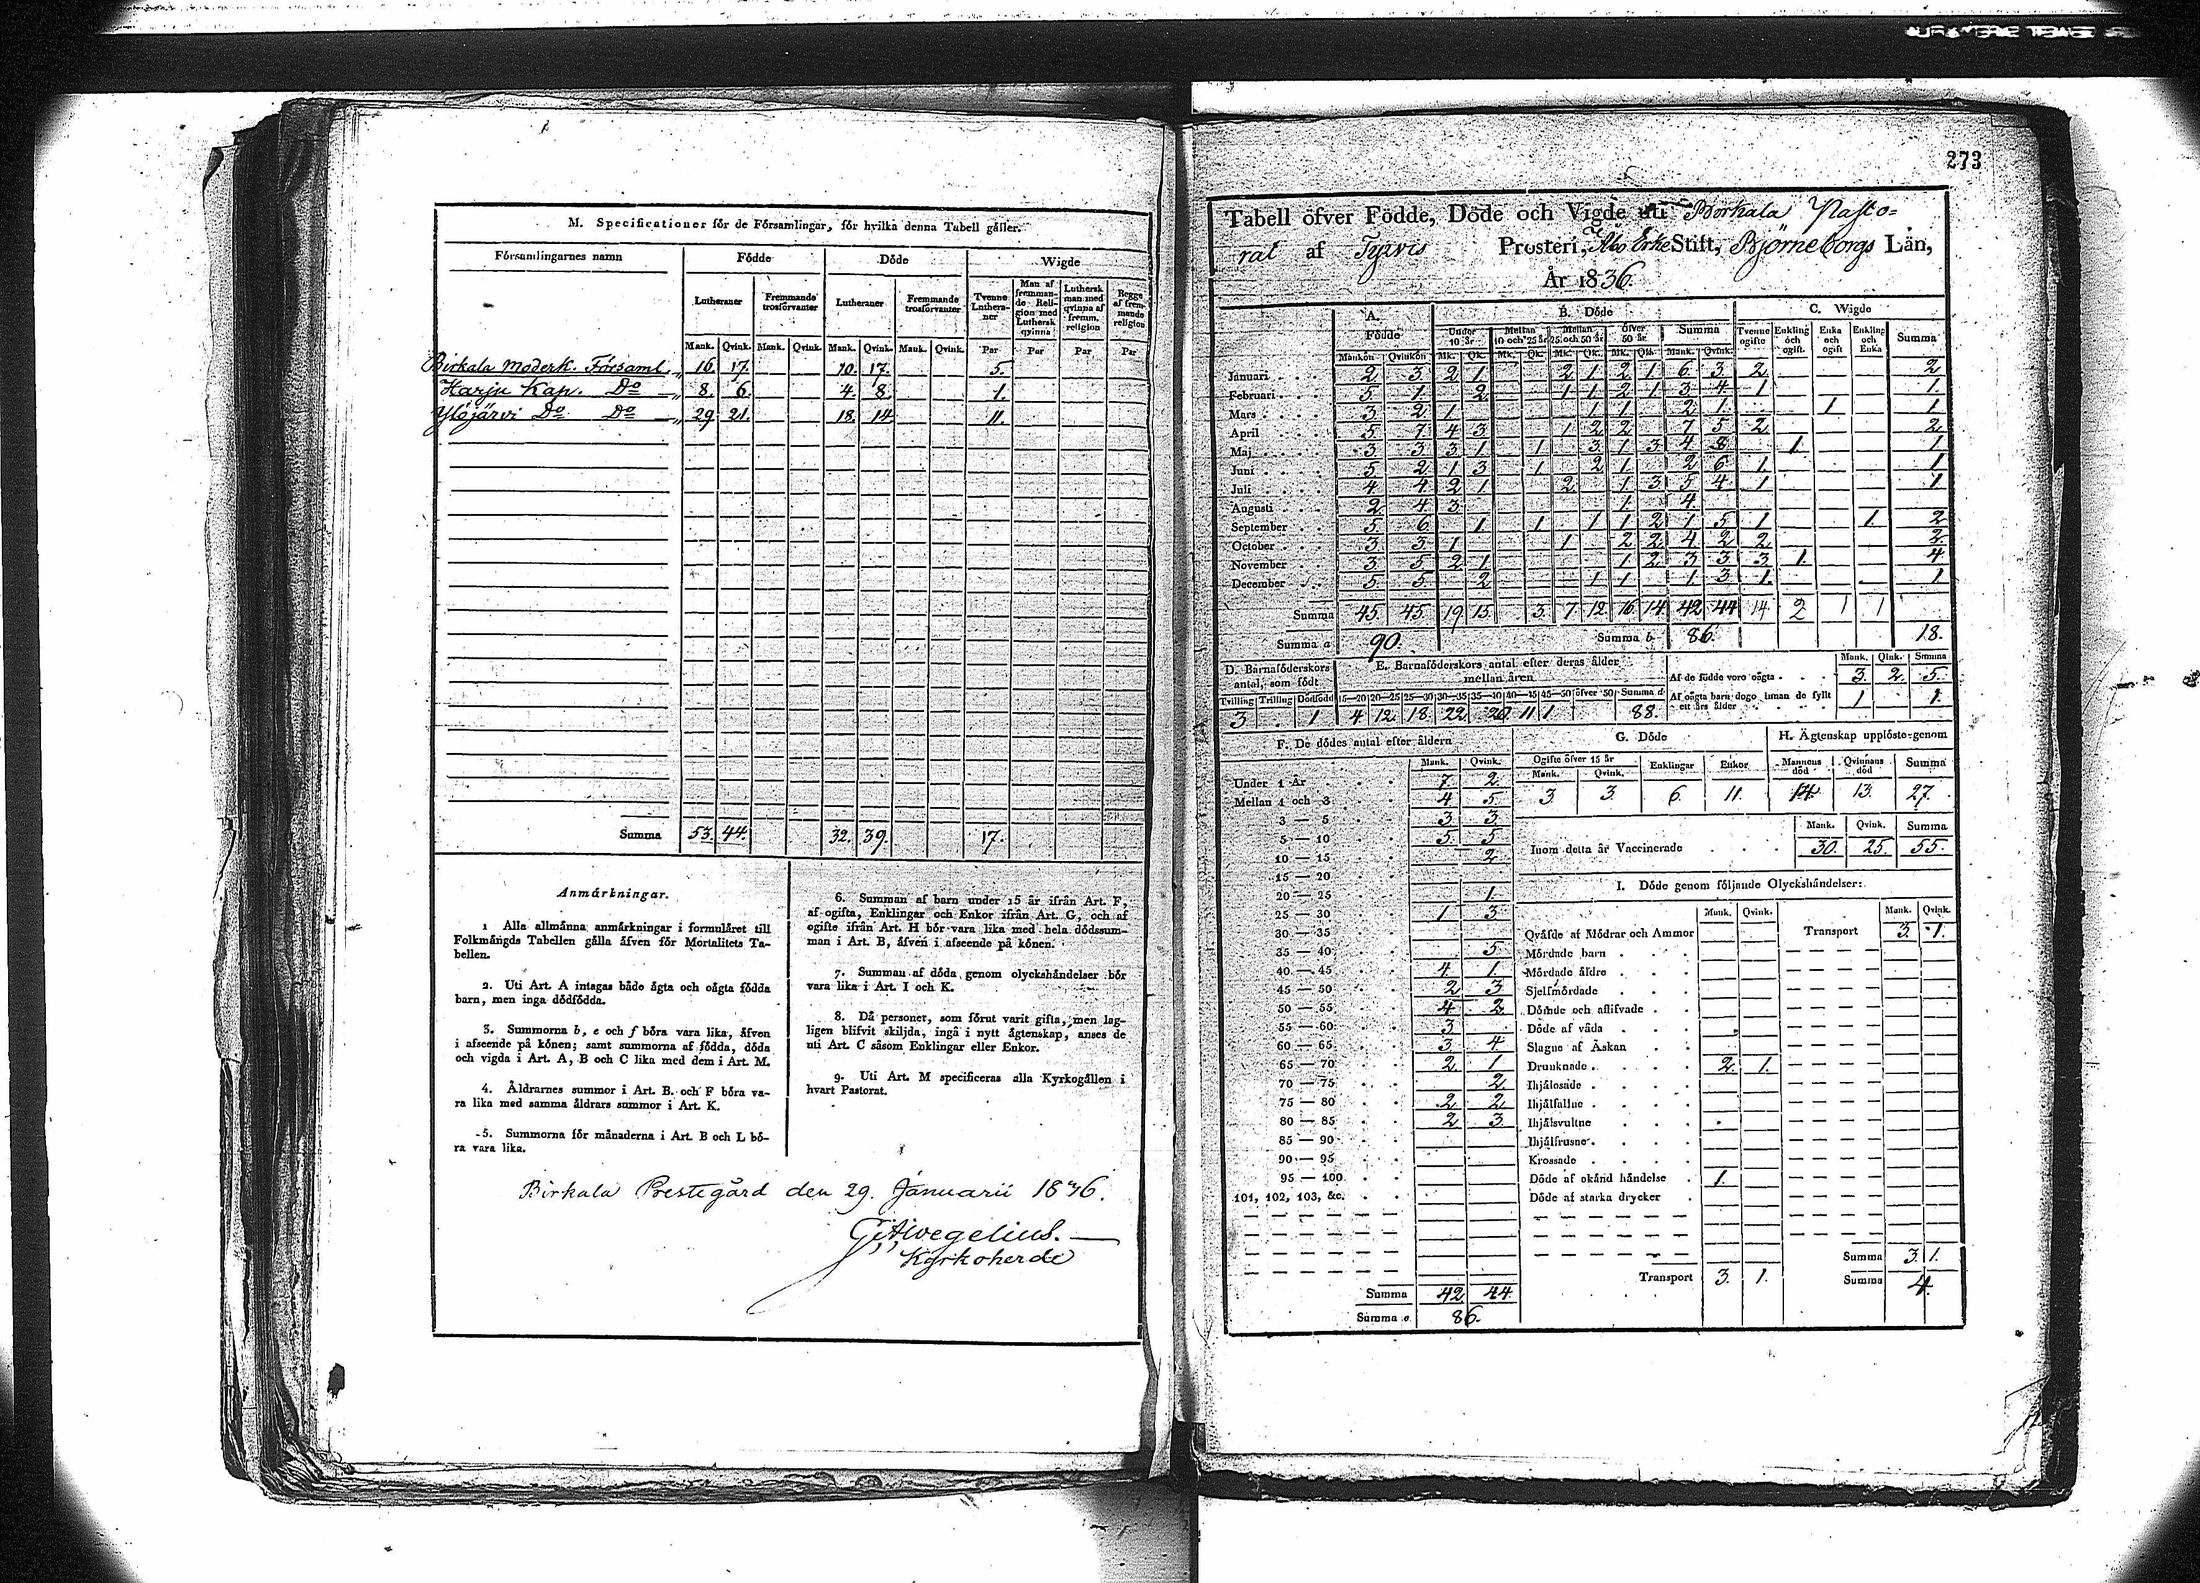 M. Specificationer för de Församlingar, för hvilka denna Tabell gäller.
Församlingarnes namn Födde Döde Wigde
Lutheraner Fremmande trosförvanter Lutheraner Fremmande trosförvanter Tvenne Lutheraner Man af fremmande Religion med Luthersk qvinna Luthersk man med qvinna af fremm. religion Begge af fremmande religion
Mank. Qvink. Mank. Qvink. Mank. Qvink. Mank. Qvink. Par Par Par Par
Birkala Moderk. Församl. 16. 17. 10. 17. 5.
Harju Kap. Do 8. 6. 4. 8. 1.
Ylöjärvi Do Do 29. 21. 18. 14. 11.
Summa 53. 44. 32. 39. 17.
Anmärkningar.
1 Alla allmänna anmärkningar i formuläret till
Folkmängds Tabellen gälla äfven för Mortalitets Ta-
bellen.
2. Uti Art. A intagas både ägta och oägta födda
barn, men inga dödfödda.
3. Summorna b, e och f böra vara lika, äfven
i afseende på könen; samt summorna af födda, döda
och vigda i Art. A, B och C lika med dem i Art. M.
4. Åldrarnes summor i Art. B. och F böra va-
ra lika med samma åldrars summor i Art. K.
5. Summorna för månaderna i Art. B och L bö-
ra vara lika.
6. Summan af barn under 15 år ifrån Art. F,
af ogifta, Enklingar och Enkor ifrån Art. G, och af
ogifte ifrån Art. H bör vara lika med hela dödssum-
man i Art. B, äfven i afseende på könen.
7. Summan af döda genom olyckshändelser bör
vara lika i Art. I och K.
8. Då personer, som förut varit gifta, men lag-
ligen blifvit skiljda, ingå i nytt ägtenskap, anses de
uti Art. C såsom Enklingar eller Enkor.
9. Uti Art. M specificeras alla Kyrkogällen i
hvart Pastorat.
Birkala Prestegård den 29. Januarii 1836.
Kyrkoherde
273
Tabell öfver Födde, Döde och Vigde uti Birkala Pasto-
rat af Tyrvis Prosteri, Åbo Erke Stift, Björneborgs Län,
År 1836.
A. Födde B. Döde C. Wigde
Under 10 år Mellan 10 och 25 år Mellan 25 och 50 år Öfver 50 år Summa Tvenne ogifte Enkling och ogift Enka och ogift Enkling och Enka Summa
Mankön Qvinkön Mk. Qk. Mk. Qk. Mk. Qk. Mk. Qk. Mank. Qvink.
Januari 2 3 2 1 2 1 2 1 6 3 2 2
Februari 5 1 2 1 1 2 1 3 4 1 1
Mars 3 2 1 1 1 2 1 1 1
April 5 7 4 3 1 2 2 7 5 2 2
Maj 3 3 3 1 1 3 1 3 4 8 1 1
Juni 5 2 1 3 1 2 1 2 6 1 1
Juli 4 4 2 1 2 1 3 5 4 1 1
Augusti 2 4 3 1 4
September 5 6 1 1 1 1 2 1 5 1 1 2
October 3 3 1 1 2 2 4 2 2 2
November 3 5 2 1 1 2 3 3 3 1 4
December 5 5 2 1 1 1 3 1 1
Summa 45 45 19 15 3 7 12 16 14 42 44 14 2 1 1
Summa a 90. Summa b 86. 18.
D. Barnaföderskors antal, som födt
E. Barnaföderskors antal efter deras ålder mellan åren
Tvilling Trilling Dödfödd 15—20 20—25 25—30 30—35 35—40 40—45 45—50 öfver 50 Summa d
3 1 4 12 18 22 20 11 1 88.
Mank. Qink. Summa
Af de födde voro oägta 3. 2. 5.
Af oägta barn dogo innan de fyllt
ett års ålder 1 1.
F. De dödes antal efter åldern
Mank. Qvink.
Under 1 År 7. 2
Mellan 1 och 3 4 5
3 — 5 3 3
5 — 10 5 5
10 — 15 2
15 — 20
20 — 25 1.
25 — 30 1 3
30 — 35
35 — 40 5
40 — 45 4. 1
45 — 50 2 3
50 — 55 4 2
55 — 60 3
60 — 65 3 4
65 — 70 2. 1
70 — 75 2.
75 — 80 2 2
80 — 85 2 3.
85 — 90
90 — 95
95 — 100
101, 102, 103, &c.
Summa 42 44.
Summa e 86.
G. Döde
Ogifte öfver 15 år Enklingar Enkor
Mank. Qvink.
3. 3. 6. 11.
H. Ägtenskap upplöste genom
Mannens död Qvinnans död Summa
14 13. 27.
Mank. Qvink. Summa
Inom detta år Vaccinerade 30. 25. 55.
I. Döde genom följande Olyckshändelser:
Mank. Qvink. Mank. Qvink.
Qväfde af Mödrar och Ammor Transport 3. 1.
Mördade barn
Mördade äldre
Sjelfmördade
Dömde och aflifvade
Döde af våda
Slagne af Åskan
Drunknade 2. 1.
Ihjälosade
Ihjälfallne
Ihjälsvultne
Ihjälfrusne
Krossade
Döde af okänd händelse 1.
Döde af starka drycker
Summa 3 1.
Transport 3. 1. Summa 4.